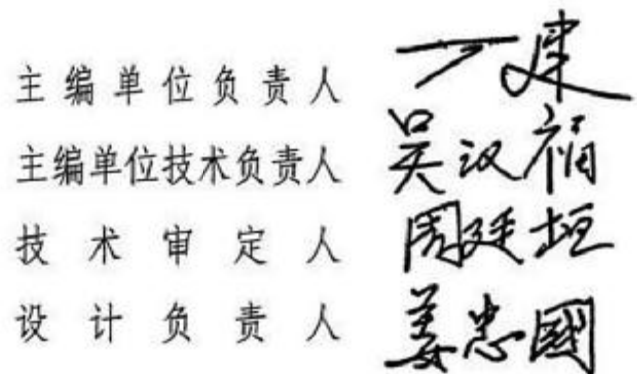 主编单位负责人 丁建
主编单位技术负责人 吴汉福
技术审定人 周廷垣
设计负责人 姜忠國